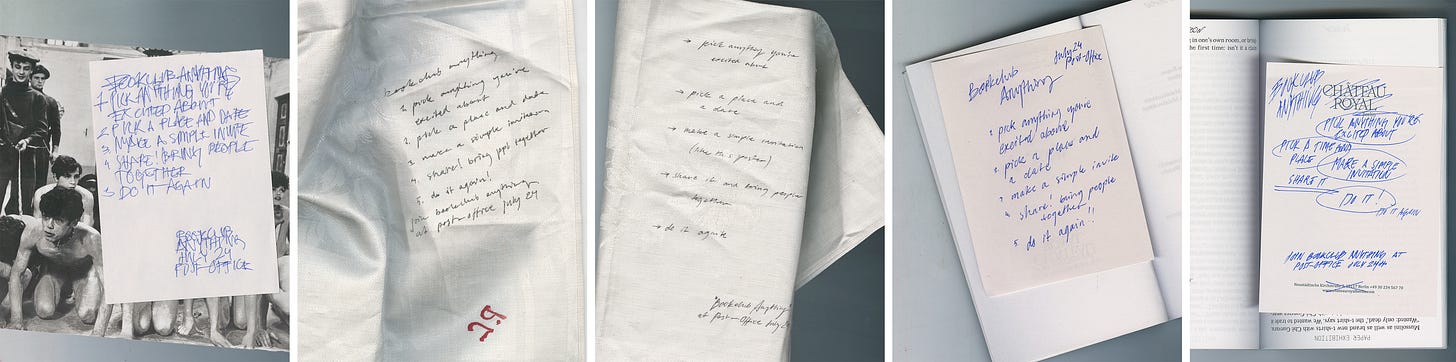 BOOKCLUB ANYTHING
1 PICK ANYTHING YOU'RE
EXCITED ABOUT
2. PICK A PLACE AND DATE
3. MAKE A SIMPLE INVITE
4 SHARE! BRING PEOPLE
TOGETHER
5 DO IT AGAIN
BOOKCLUB
ANYTHING
JULY 24
POST-OFFICE
bookclub anything
1. pick anything you're
excited about
2. pick a place and date
3. make a simple invitation
4. share! bring ppl together
5. do it again!
join bookclub anything
at post-office july 24
→ pick anything you're
excited about
→ pick a place and
a date
→ make a simple invitation
(like this poster)
→ share it and bring people
together
→ do it again
"Bookclub Anything"
at Post-Office July 24
July 24
Post-Office
Bookclub
Anything
1. pick anything you're
excited about
2. pick a place and
a date
3. make a simple invite
4. share! bring people
together
5. do it again!!
in one's own room, or
the first time: isn't it a
BOOKCLUB
ANYTHING
CHÂTEAU
ROYAL
PICK ANYTHING YOU'RE
EXCITED ABOUT
PICK A TIME AND
PLACE
MAKE A SIMPLE
INVITATION
SHARE IT
DO IT!
DO IT AGAIN
JOIN BOOKCLUB ANYTHING AT
POST-OFFICE JULY 24th
PAPER EXHIBITION